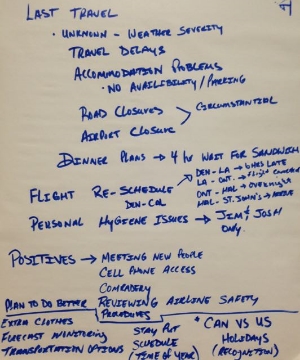 LAST TRAVEL
• UNKNOWN - WEATHER SEVERITY
TRAVEL DELAYS
ACCOMMODATION PROBLEMS
• NO AVAILIBILITY / PARKING
ROAD CLOSURES > CIRCUMSTANTIAL
AIRPORT CLOSURE
DINNER PLANS → 4 hr WAIT FOR SANDWICH
FLIGHT RE-SCHEDULE → DEN - LA → 6 HRS LATE
LA - ONT. → flight canceled
DEN-COL
ONT - HAL → OVERNIGHT
HAL - ST. JOHN'S → ARRIVE
PERSONAL HYGIENE ISSUES → JIM & JOSH
ONLY.
POSITIVES → MEETING NEW PEOPLE
CELL PHONE ACCESS
COMRADERY
PLAN TO DO BETTER
REVIEWING AIRLINE SAFETY
PROCEDURES
EXTRA CLOTHES
FORECAST MONITORING
TRANSPORTATION OPTIONS
STAY PUT
SCHEDULE
(TIME OF YEAR)
* CAN VS US
HOLIDAYS
(RECOGNITION)